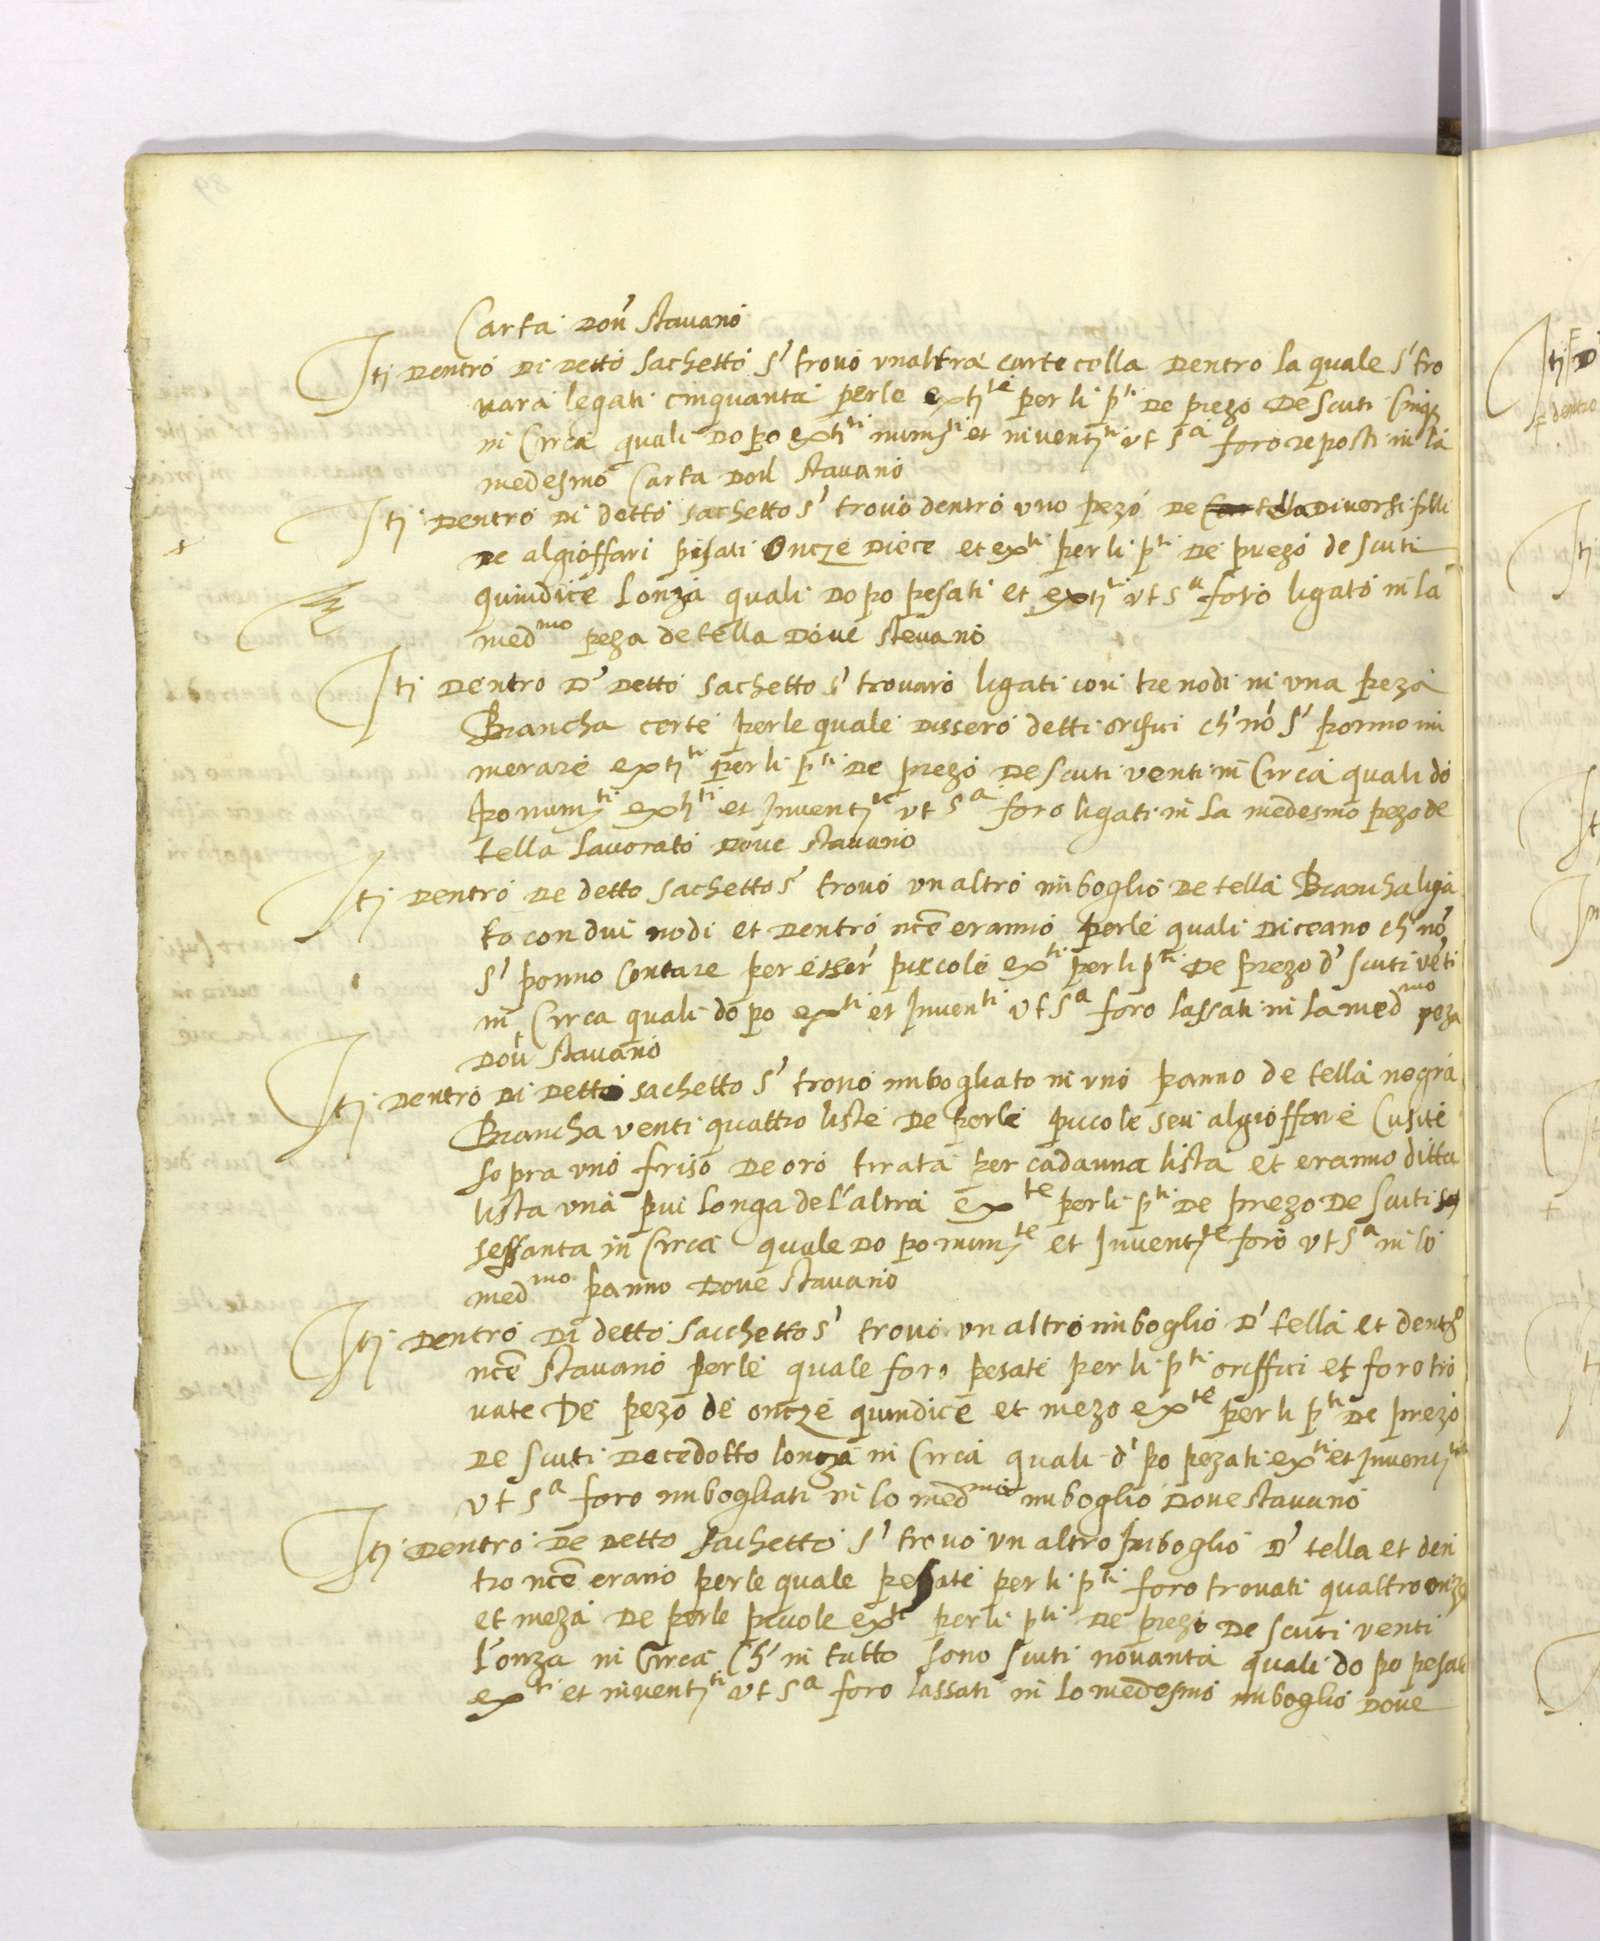 Carta Dou' stavano
Itj Dentro Di Detto Sachetto s' trovò vnaltra cartecella Dentro la quale s' tro
vara legati cinquanta perle extj^te per li p^ti De prezo De scuti Cinq
in Circa quali Dopo exti^ti num^ti et invent^ti vt s^a foro reposti in la
medesmo Carta Dou' stavano
Itj Dentro Di detto sachetto s' trovò dentro vno pezo De tella Diversi filli
De algioffari pisati Oncze Diece et ex^ti per li p^ti De prezo de scuti
quindice Lonza quali Dopo pesati et extj^ti vt s^a foro ligato in la
med^mo peza de tella Dove stevano
Itj Dentro D' Detto sachetto s' trovaro ligati con tre nodi in vna peza
Biancha certe perle quale Dissero detti orifici ch' nò s' ponno nu
merare extj^ti per li p^ti De prezo De scuti venti in Circa quali do
po num^ti exti^ti et Invent^ti vt s^a foro ligati in la medesmo pezo de
tella Lavorato Dove stavano
Itj Dentro De detto sachetto s' trovò vn altro imboglio De tella Biancha liga
to con dui nodi et Dentro nce eranno perle quali Diceano ch' nò
s' ponno Contare per esser' piccole ex^ti per li p^ti De prezo d' scuti vēti
in Circa quali dopo ex^ti et Inven^ti vt s^a foro lassati in la med^mo peza
Dou' stavano
Itj Dentro Di Detto sachetto s' trovò imbogliato in vno panno de tella negra
Biancha venti quattro liste De perle piccole seu algioffare Cusite
sopra vno friso De oro tirata per cadauna lista et eranno ditta
lista vna piu longa de l'altra ex^te per li p^ti De prezo De scuti
sessanta in Circa quale Dopo num^te et Invent^te foro vt s^a in lo
med^mo panno Dove stavano
Itj Dentro Di detto sacchetto s' trovò vn altro imboglio D' tella et dentro
nce stavano perle quale foro pesate per li p^ti oriffici et foro tro
vate De pezo de oncze quindice et mezo ex^te per li p^ti De prezo
De scuti Decedotto lonza in Circa quali d'po pezati ex^ti et Invent^ti
vt s^a foro imbogliati in lo med^mo imboglio Dove stavano
Itj Dentro De Detto sachetto s' trovò vn altro Imboglio D' tella et den
tro nce erano perle quale pesate per li p^ti foro trovati quattro onze
et meza De perle piccole ex^ti per li p^ti De prezo De scuti venti
l'onza in Circa Ch' in tutto sono scuti novanta quali dopo pesati
ex^ti et invent^ti vt s^a foro lassati in lo medesmo imboglio Dove